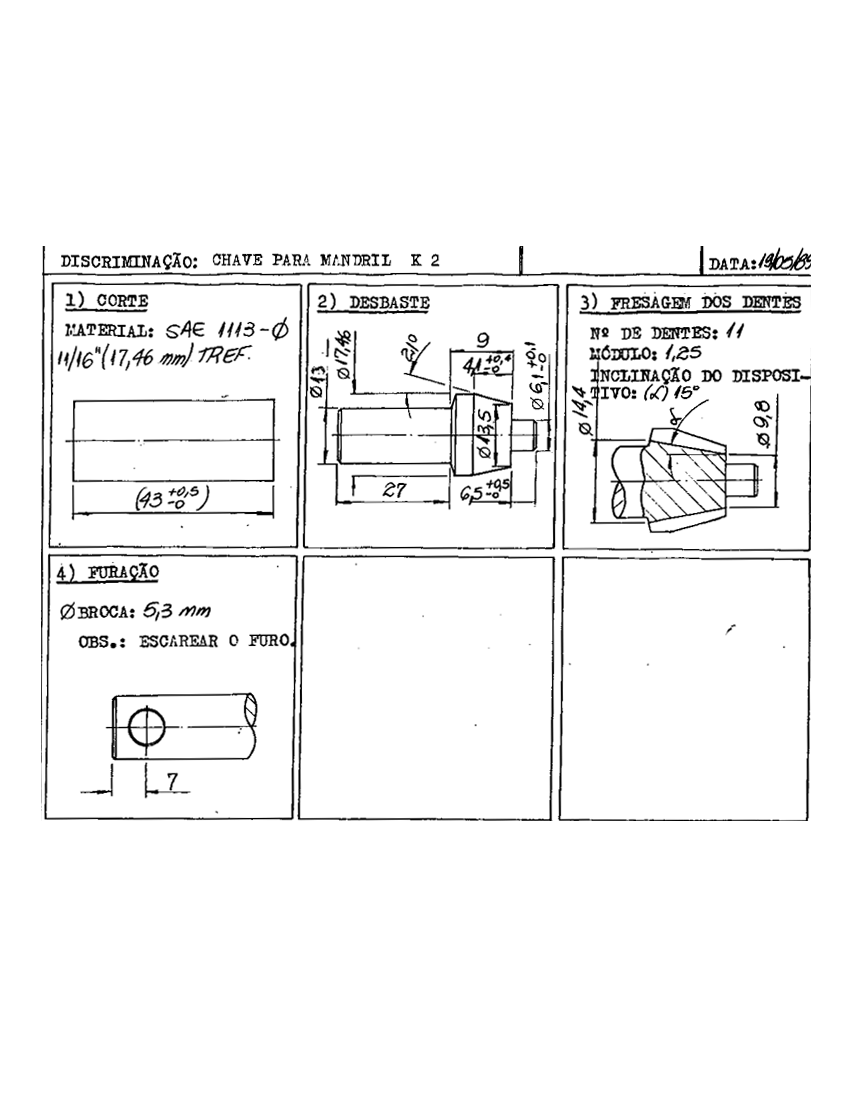 DISCRIMINAÇÃO: CHAVE PARA MANDRIL K 2
DATA: 19/05/85
1) CORTE
MATERIAL: SAE 1113-Ø
11/16" (17,46 mm) TREF.
(43 +0,5 -0)
2) DESBASTE
Ø13
Ø17,46
9
4,1 +0,4 -0
Ø6,1 +0,1 -0
Ø13,5
27
6,5 +0,5 -0
3) FRESAGEM DOS DENTES
Nº DE DENTES: 11
MÓDULO: 1,25
INCLINAÇÃO DO DISPOSI-
TIVO: (∠) 15°
Ø14,4
δ
Ø9,8
4) FURAÇÃO
Ø BROCA: 5,3 mm
OBS.: ESCAREAR O FURO.
7